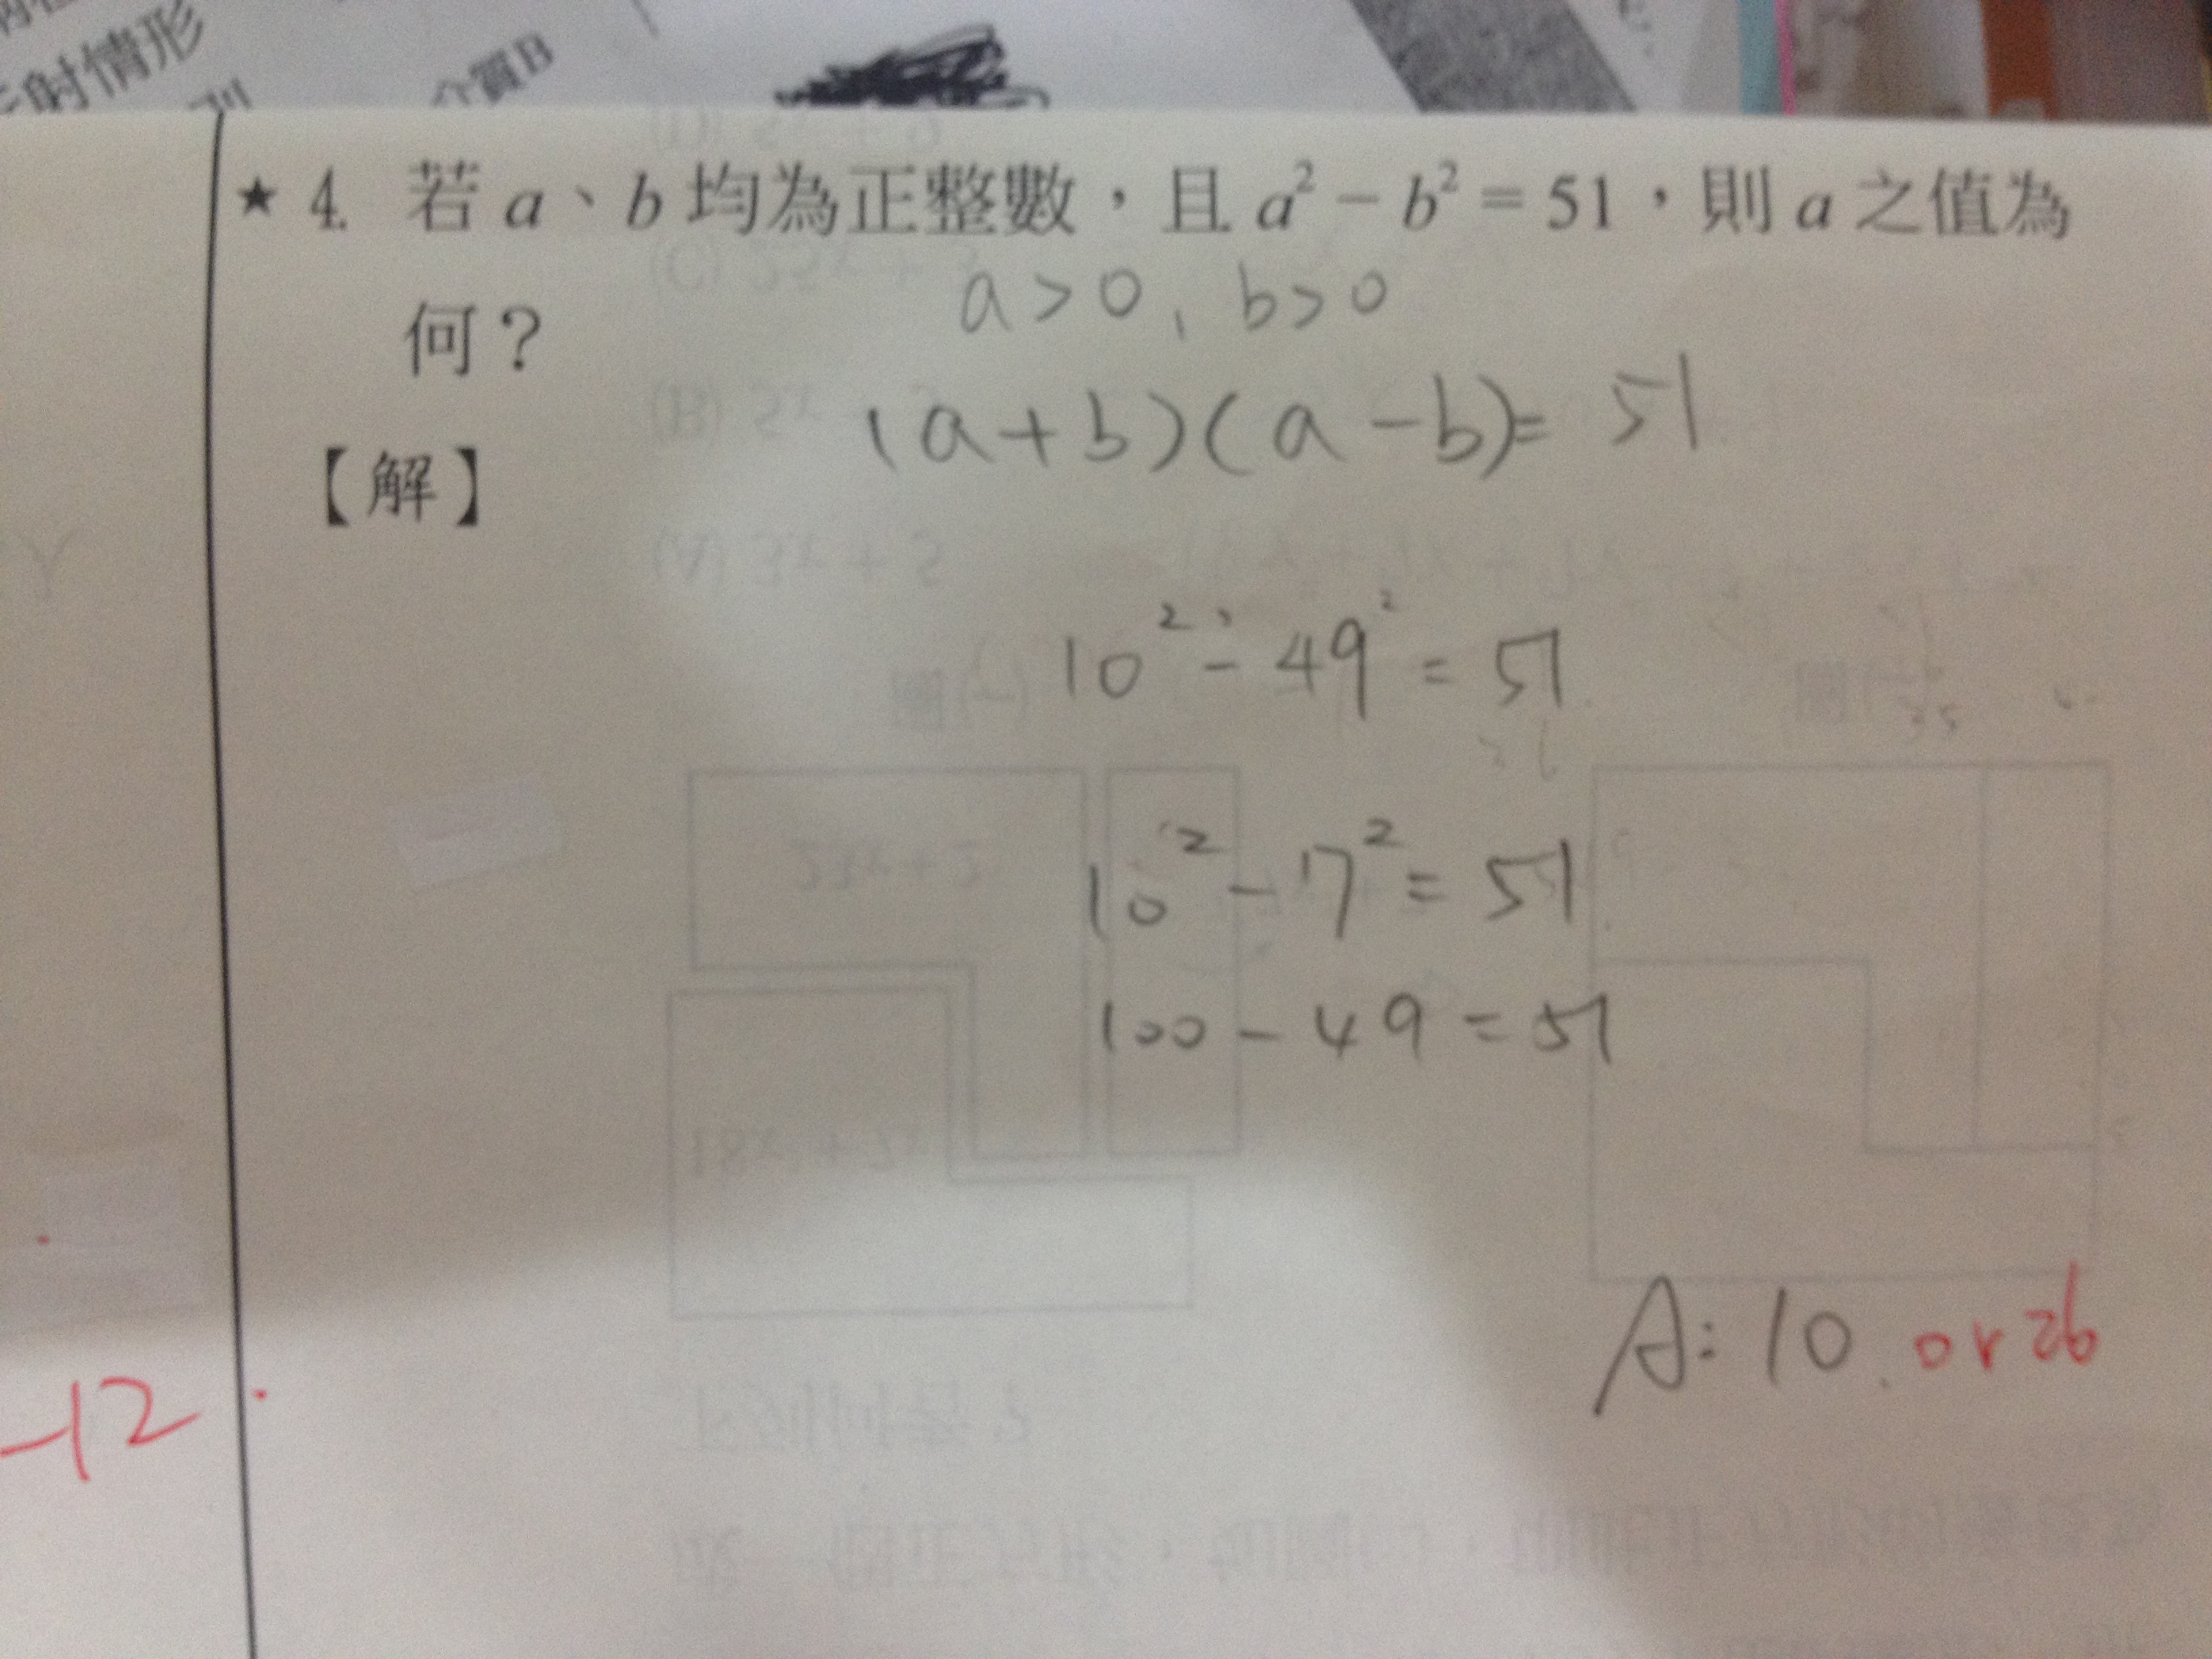 射情形
介質B
★ 4. 若 a、b 均為正整數，且 a² − b² = 51，則 a 之值為
何？
a > 0、b > 0
(a + b)(a − b) = 51
【解】
10² − 49² = 51
10² − 7² = 51
100 − 49 = 51
A: 10. or 26
-12